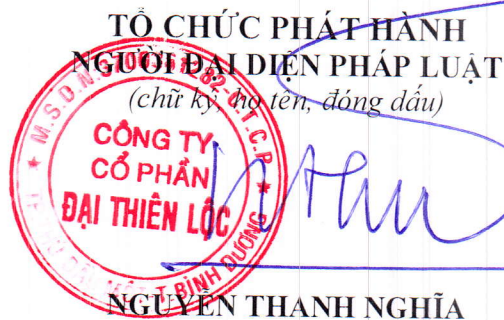 TỔ CHỨC PHÁT HÀNH
NGƯỜI ĐẠI DIỆN PHÁP LUẬT
(chữ ký, họ tên, đóng dấu)
CÔNG TY
CỔ PHẦN
ĐẠI THIÊN LỘC
T. BÌNH DƯƠNG
NGUYỄN THANH NGHĨA